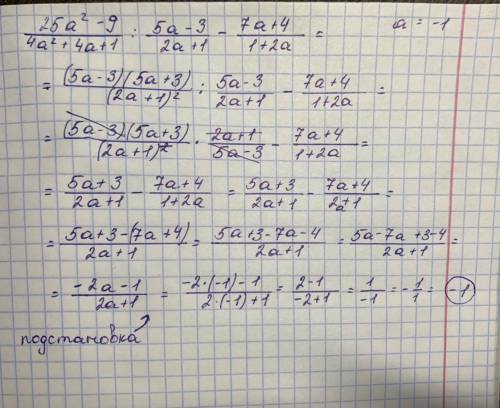 (25a² - 9)/(4a² + 4a + 1) : (5a - 3)/(2a + 1) - (7a + 4)/(1 + 2a) = a = -1
= (5a - 3)(5a + 3)/(2a + 1)² : (5a - 3)/(2a + 1) - (7a + 4)/(1 + 2a) =
= (5a - 3)·(5a + 3)/(2a + 1)² · (2a + 1)/(5a - 3) - (7a + 4)/(1 + 2a) =
= (5a + 3)/(2a + 1) - (7a + 4)/(1 + 2a) = (5a + 3)/(2a + 1) - (7a + 4)/(2a + 1) =
= (5a + 3 - (7a + 4))/(2a + 1) = (5a + 3 - 7a - 4)/(2a + 1) = (5a - 7a + 3 - 4)/(2a + 1) =
= (-2a - 1)/(2a + 1) = (-2·(-1) - 1)/(2·(-1) + 1) = (2 - 1)/(-2 + 1) = 1/(-1) = -1/1 = -1
подстановка